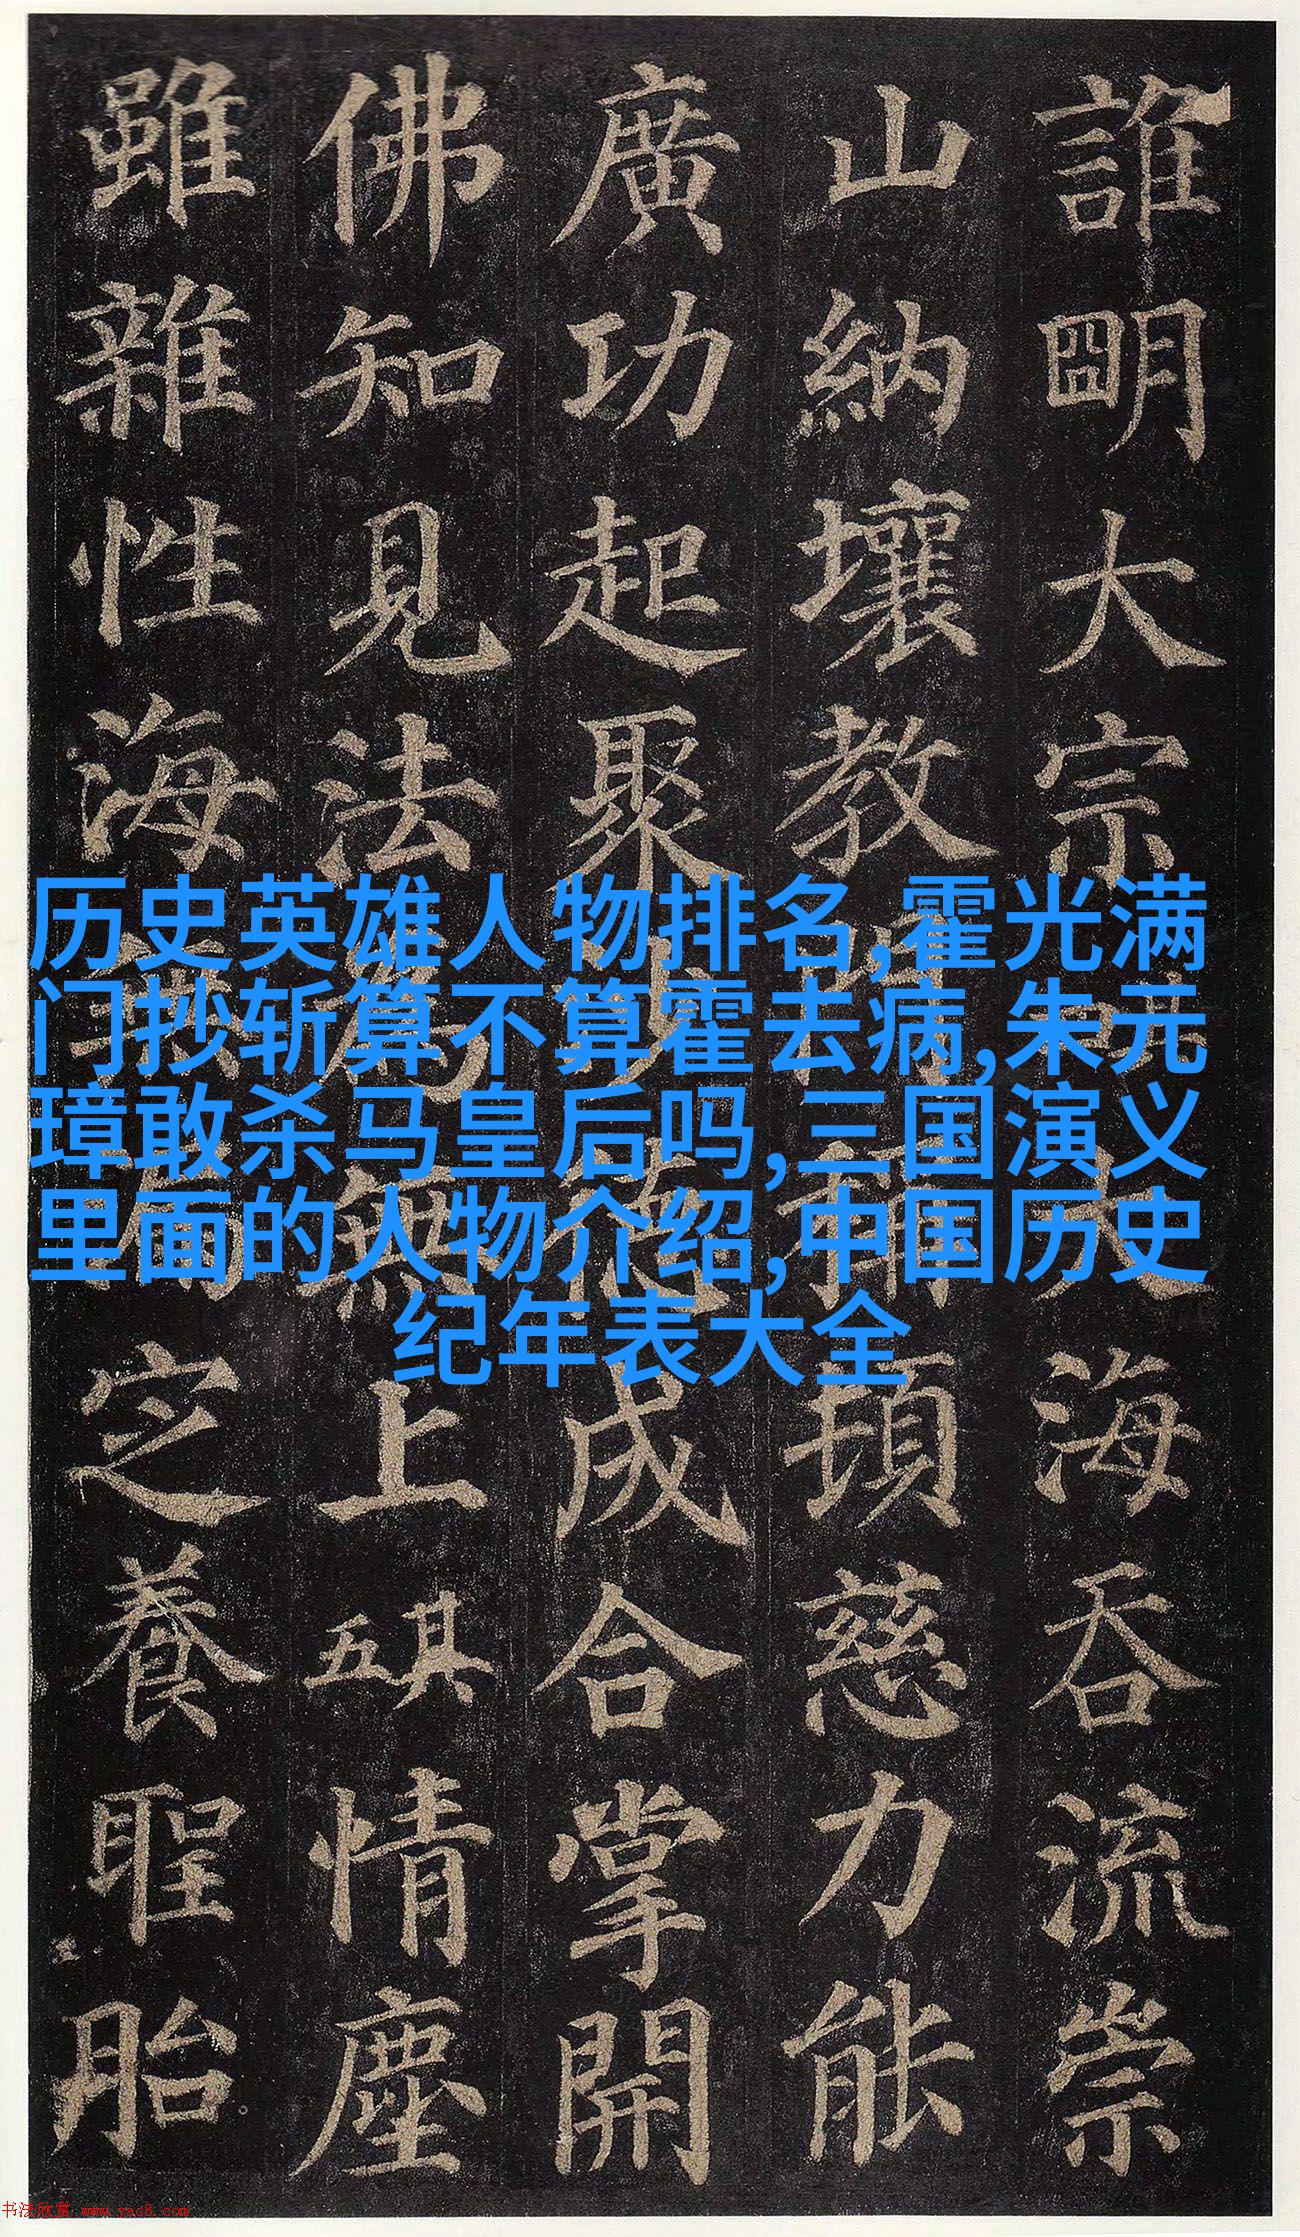 历史英雄人物排名,霍光满
门抄斩算不算霍去病,朱元
璋敢杀马皇后吗,三国演义
里面的人物介绍,中国历史
纪年表大全
誰明大宗其四大海吞流崇
山納壤教門稱頓慈力能
廣功起聚沙德成合掌開
佛知見法為無上其五情塵
雖雜性海無漏定養聖胎
书法欣赏 www.yac8.com